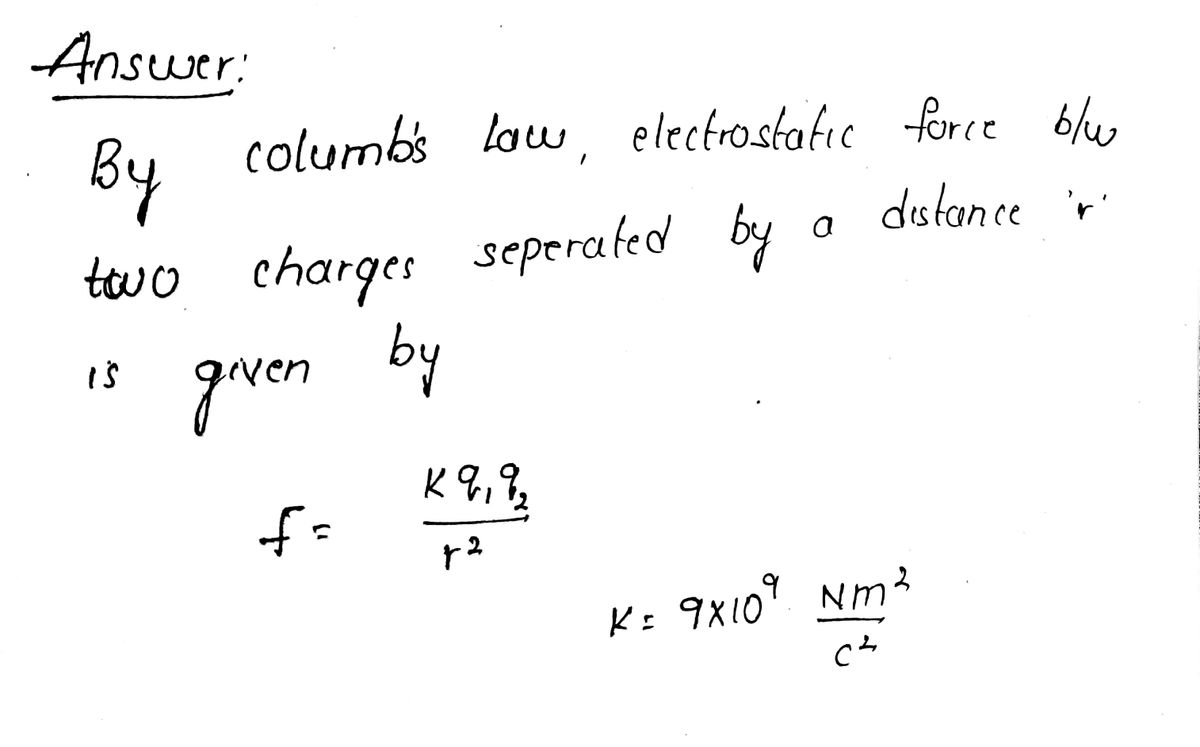 Answer:
By columb's law, electrostatic force b/w
two charges seperated by a distance 'r'
is given by
f = K q₁ q₂ / r²
K = 9×10⁹ Nm² / C²